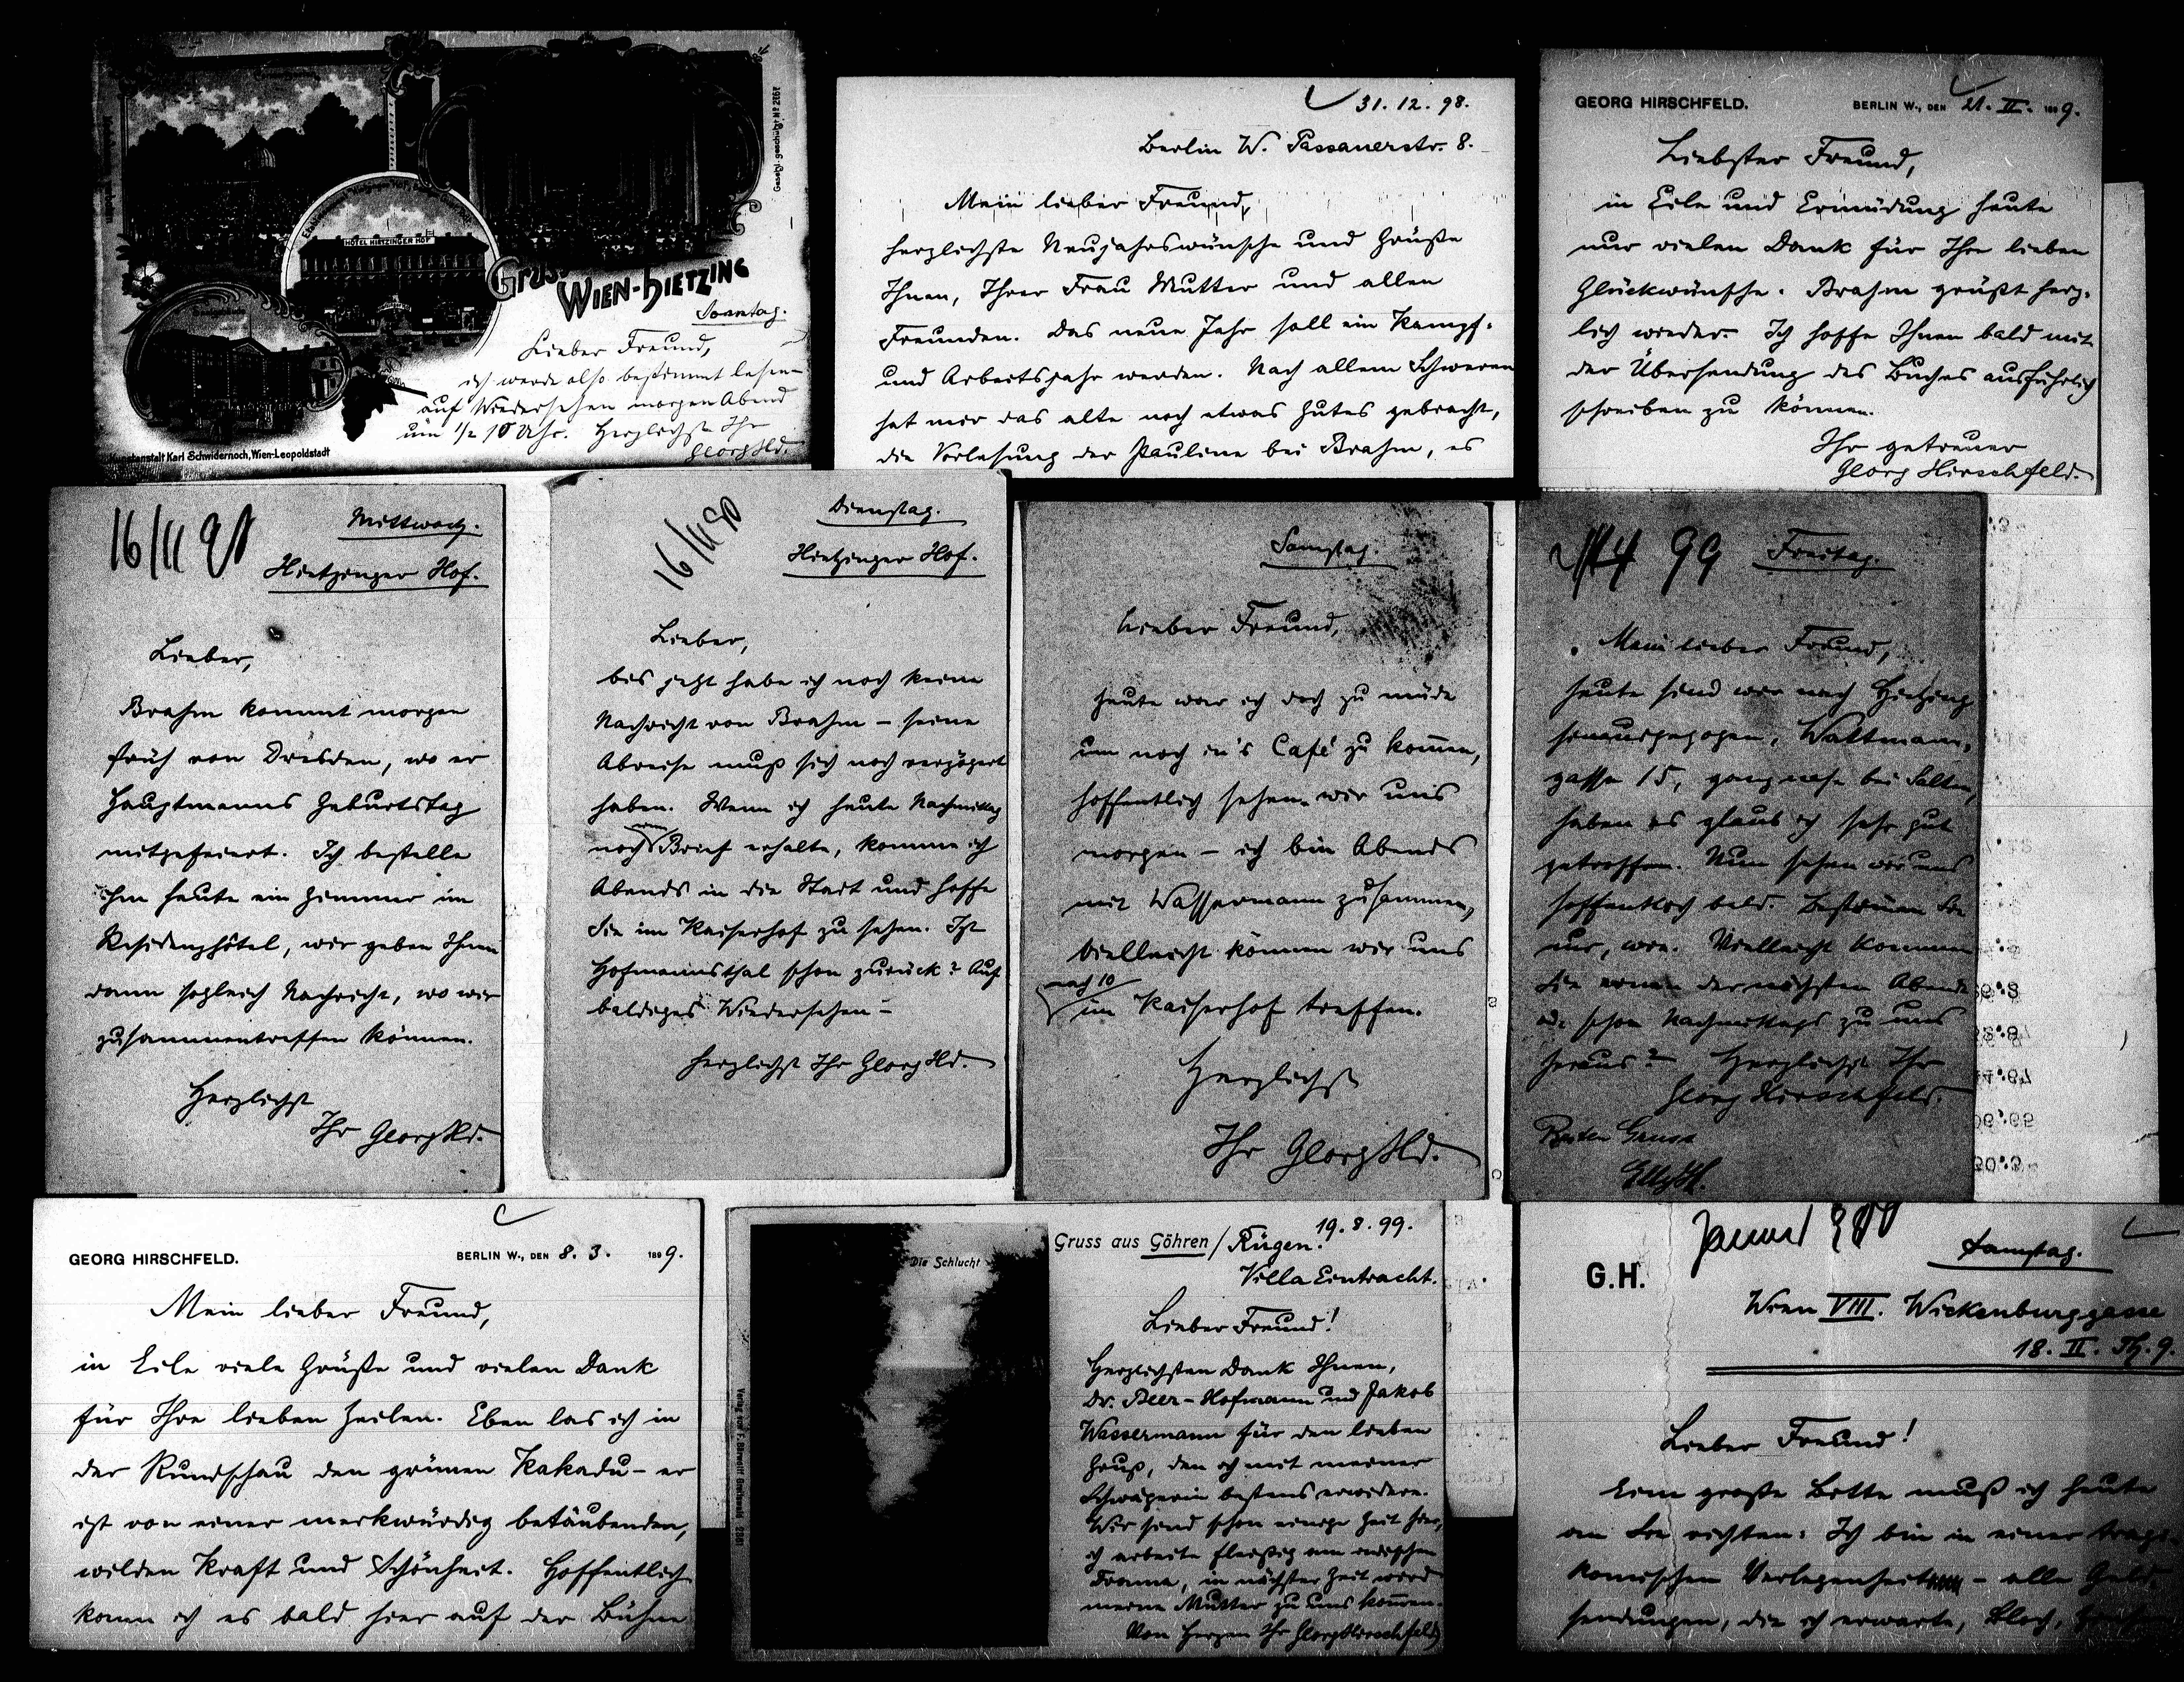 Gesetzl. geschützt № 2767
HÔTEL HIETZINGER HOF
Gruss
WIEN-HIETZING
Sonntag.
Lieber Freund,
ich werde also bestimmt lesen –
auf Wiedersehen morgen Abend
um ½ 10 Uhr. Herzlichst Ihr
Georg Hd.
Kunstanstalt Karl Schwidernoch, Wien-Leopoldstadt
31. 12. 98.
Berlin W. Passauerstr. 8.
Mein lieber Freund,
herzlichste Neujahrswünsche und Grüße
Ihnen, Ihrer Frau Mutter und allen
Freunden. Das neue Jahr soll ein Kampf-
und Arbeitsjahr werden. Nach allem Schweren
hat mir das alte noch etwas Gutes gebracht,
die Vorlesung der Pauline bei Brahm, es
GEORG HIRSCHFELD.
BERLIN W., DEN 21. II. 1899.
Liebster Freund,
in Eile und Ermüdung heute
nur vielen Dank für Ihre lieben
Glückwünsche. Brahm grüßt herz-
lich wieder. Ich hoffe Ihnen bald mit
der Übersendung des Buches ausführlich
schreiben zu können.
Ihr getreuer
Georg Hirschfeld.
Mittwoch.
Hietzinger Hof.
Lieber,
Brahm kommt morgen
früh von Dresden, wo er
Hauptmanns Geburtstag
mitgefeiert. Ich bestelle
ihm heute ein Zimmer im
Residenzhôtel, wir geben Ihnen
dann sogleich Nachricht, wo wir
zusammentreffen können.
Herzlichst
Ihr Georg Hd.
Dienstag.
Hietzinger Hof.
Lieber,
bis jetzt habe ich noch keine
Nachricht von Brahm – seine
Abreise muß sich noch verzögert
haben. Wenn ich heute Nachmittag
noch einen Brief erhalte, komme ich
Abends in die Stadt und hoffe
Sie im Kaiserhof zu sehen. Ist
Hofmannsthal schon zurück? Auf
baldiges Wiedersehen –
herzlichst Ihr Georg Hd.
Samstag.
Lieber Freund,
heute war ich doch zu müde
um noch in's Café zu kommen,
hoffentlich sehen wir uns
morgen – ich bin Abends
mit Wassermann zusammen,
vielleicht können wir uns
nach 10
im Kaiserhof treffen.
Herzlichst
Ihr Georg Hd.
4 99
Freitag.
Mein lieber Freund,
heute sind wir nach Hietzing
hinausgezogen, Wattmann-
gasse 15, ganz nahe bei Salten,
haben es glaub ich sehr gut
getroffen. Nun sehen wir uns
hoffentlich bald. Bestimmen Sie
nur, wie. Vielleicht kommen
Sie einen der nächsten Abende
od. schon Nachmittags zu uns
heraus? Herzlichst Ihr
Georg Hirschfeld.
Besten Gruss
Elly H.
GEORG HIRSCHFELD.
BERLIN W., DEN 8. 3. 1899.
Mein lieber Freund,
in Eile viele Grüße und vielen Dank
für Ihre lieben Zeilen. Eben las ich in
der Rundschau den grünen Kakadu – er
ist von einer merkwürdig betäubenden,
wilden Kraft und Schönheit. Hoffentlich
kann ich es bald hier auf der Bühne
Die Schlucht
Gruss aus Göhren / Rügen.
19. 8. 99.
Villa Eintracht.
Lieber Freund!
Herzlichsten Dank Ihnen,
Dr. Beer-Hofmann und Jakob
Wassermann für den lieben
Gruß, den ich mit meiner
Schwägerin bestens erwidere.
Wir sind schon einige Zeit hier,
ich arbeite fleißig am
in nächster Zeit wird
meine Mutter zu uns kommen.
Von Herzen Ihr Georg Hirschfeld
G.H.
Samstag.
Wien VIII. Wickenburggasse
18. II. Th. 9.
Lieber Freund!
Eine große Bitte muß ich heute
an Sie richten: Ich bin in einer tragi-
komischen Verlegenheit – alle Geld-
sendungen, die ich erwarte, Bloch,